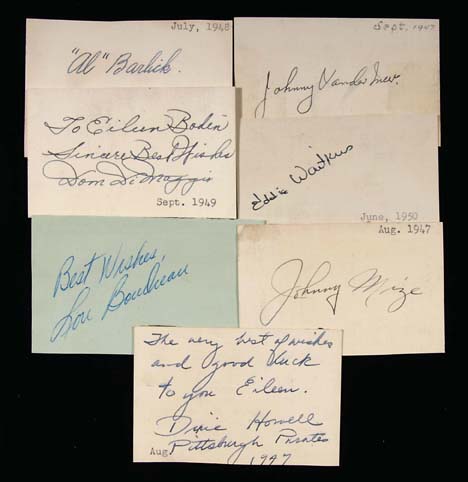 July, 1948
"Al" Barlick.
Sept. 1947
Johnny Vander Meer.
To Eileen Boden
Sincere Best Wishes
Dom DiMaggio
Sept. 1949
Eddie Waitkus
June, 1950
Best Wishes,
Lou Boudreau
Aug. 1947
Johnny Mize
The very best of wishes
and good luck
to you Eileen.
Dixie Howell
Pittsburgh Pirates
Aug. 1947